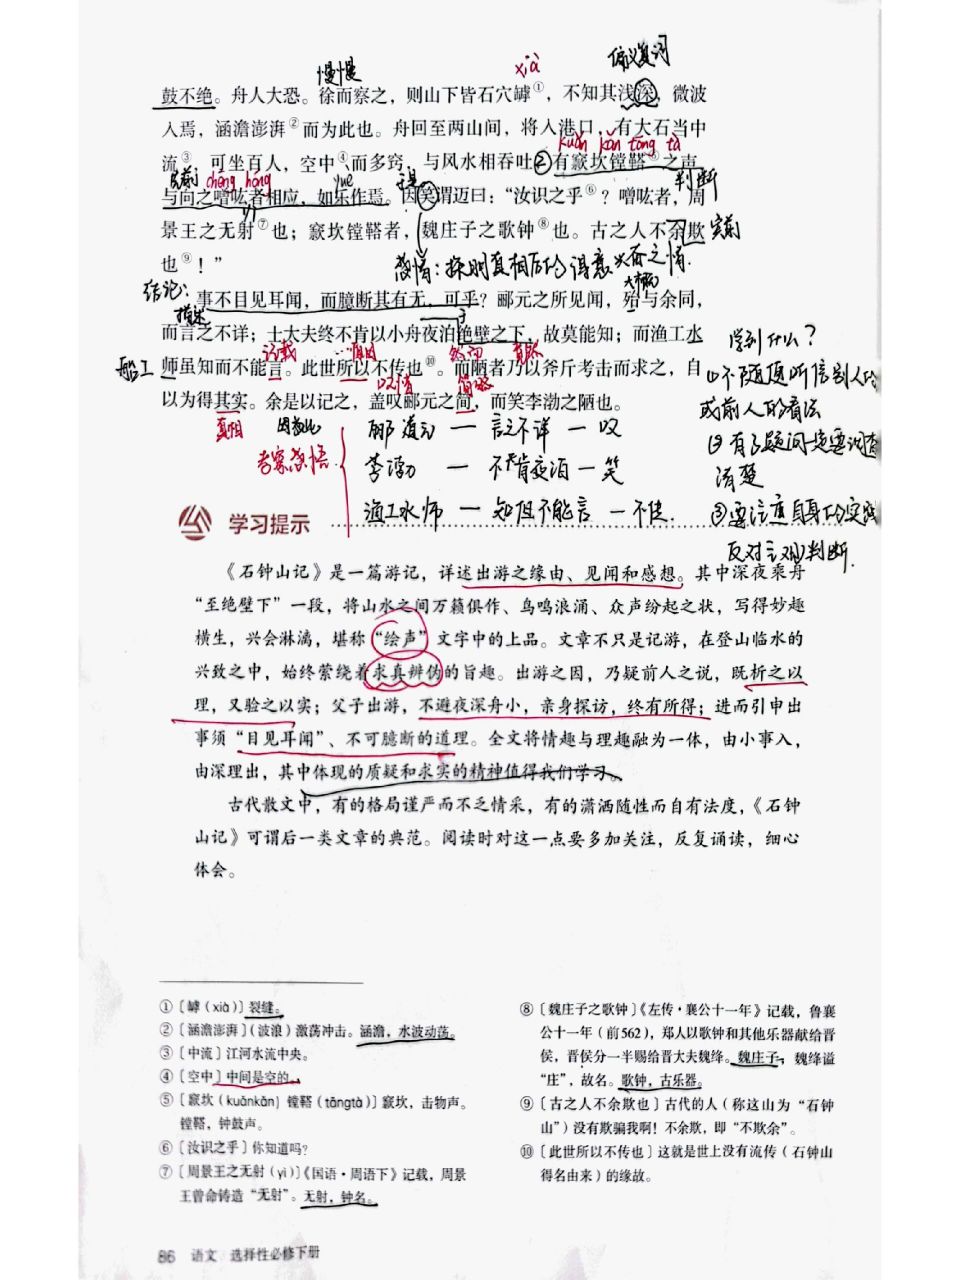 慢慢
xià
偏义复词
鼓不绝。舟人大恐。徐而察之，则山下皆石穴罅①，不知其浅深，微波
入焉，涵澹澎湃②而为此也。舟回至两山间，将入港口，有大石当中
kuǎn kǎn tāng tà
流③，可坐百人，空中④而多窍，与风水相吞吐，有窾坎镗鞳⑤之声，
chēng hóng
yuè
于是
判断
与向之噌吰者相应，如乐作焉。因笑谓迈曰：“汝识之乎⑥？噌吰者，周
景王之无射⑦也；窾坎镗鞳者，魏庄子之歌钟⑧也。古之人不余欺
宾前
也⑨！”
感情：探明真相后的得意兴奋之情.
结论：
大概
事不目见耳闻，而臆断其有无，可乎？郦元之所见闻，殆与余同，
描述
而言之不详；士大夫终不肯以小舟夜泊绝壁之下，故莫能知；而渔工水
记载
…原因
船工
师虽知而不能言。此世所以不传也⑩。而陋者乃以斧斤考击而求之，自
叹惜
简略
以为得其实。余是以记之，盖叹郦元之简，而笑李渤之陋也。
真相
因此
考察感悟
郦道元 — 言之不详 — 叹
李渤 — 不肯夜泊 — 笑
渔工水师 — 知但不能言 — 不传.
学到什么？
①不随便听信别人的
或前人的看法
②有了疑问一定要调查
清楚
③要注重自身的实践
反对主观判断.
学习提示
《石钟山记》是一篇游记，详述出游之缘由、见闻和感想。其中深夜乘舟
“至绝壁下”一段，将山水之间万籁俱作、鸟鸣浪涌、众声纷起之状，写得妙趣
横生，兴会淋漓，堪称“绘声”文字中的上品。文章不只是记游，在登山临水的
兴致之中，始终萦绕着求真辨伪的旨趣。出游之因，乃疑前人之说，既析之以
理，又验之以实；父子出游，不避夜深舟小，亲身探访，终有所得；进而引申出
事须“目见耳闻”、不可臆断的道理。全文将情趣与理趣融为一体，由小事入，
由深理出，其中体现的质疑和求实的精神值得我们学习。
古代散文中，有的格局谨严而不乏情采，有的潇洒随性而自有法度，《石钟
山记》可谓后一类文章的典范。阅读时对这一点要多加关注，反复诵读，细心
体会。
①〔罅（xià）〕裂缝。
②〔涵澹澎湃〕（波浪）激荡冲击。涵澹，水波动荡。
③〔中流〕江河水流中央。
④〔空中〕中间是空的。
⑤〔窾坎（kuǎnkǎn）镗鞳（tāngtà）〕窾坎，击物声。
镗鞳，钟鼓声。
⑥〔汝识之乎〕你知道吗？
⑦〔周景王之无射（yì）〕《国语·周语下》记载，周景
王曾命铸造“无射”。无射，钟名。
⑧〔魏庄子之歌钟〕《左传·襄公十一年》记载，鲁襄
公十一年（前562），郑人以歌钟和其他乐器献给晋
侯，晋侯分一半赐给晋大夫魏绛。魏庄子，魏绛谥
“庄”，故名。歌钟，古乐器。
⑨〔古之人不余欺也〕古代的人（称这山为“石钟
山”）没有欺骗我啊！不余欺，即“不欺余”。
⑩〔此世所以不传也〕这就是世上没有流传（石钟山
得名由来）的缘故。
86 语文 选择性必修下册